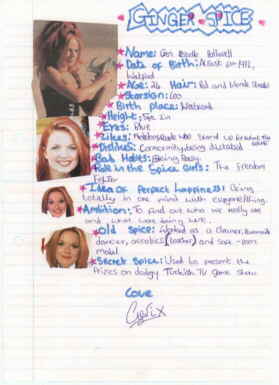 GINGER SPICE
Name: Geri Estelle Halliwell
Date of Birth: August 6th 1972,
Watford
Age: 26 Hair: Red and blonde streaks
Starsign: Leo
Birth place: Watford
Height: 5ft 2in
Eyes: Blue
Likes: people who stand up for what they
Dislikes: Conformity, being dictated
Bad Habits: Being Bossy
Role in the Spice Girls: The Freedom
Fighter
Idea of Perfect happiness: Being
totally in one mind with everyone/thing.
Ambition: To find out who we really are
and what were doing here.
Old Spice: Worked as a cleaner,
dancer, aerobics (teacher) and soft-porn
model
Secret Spice: Used to present the
prizes on dodgy Turkish TV game show
Love
Geri x